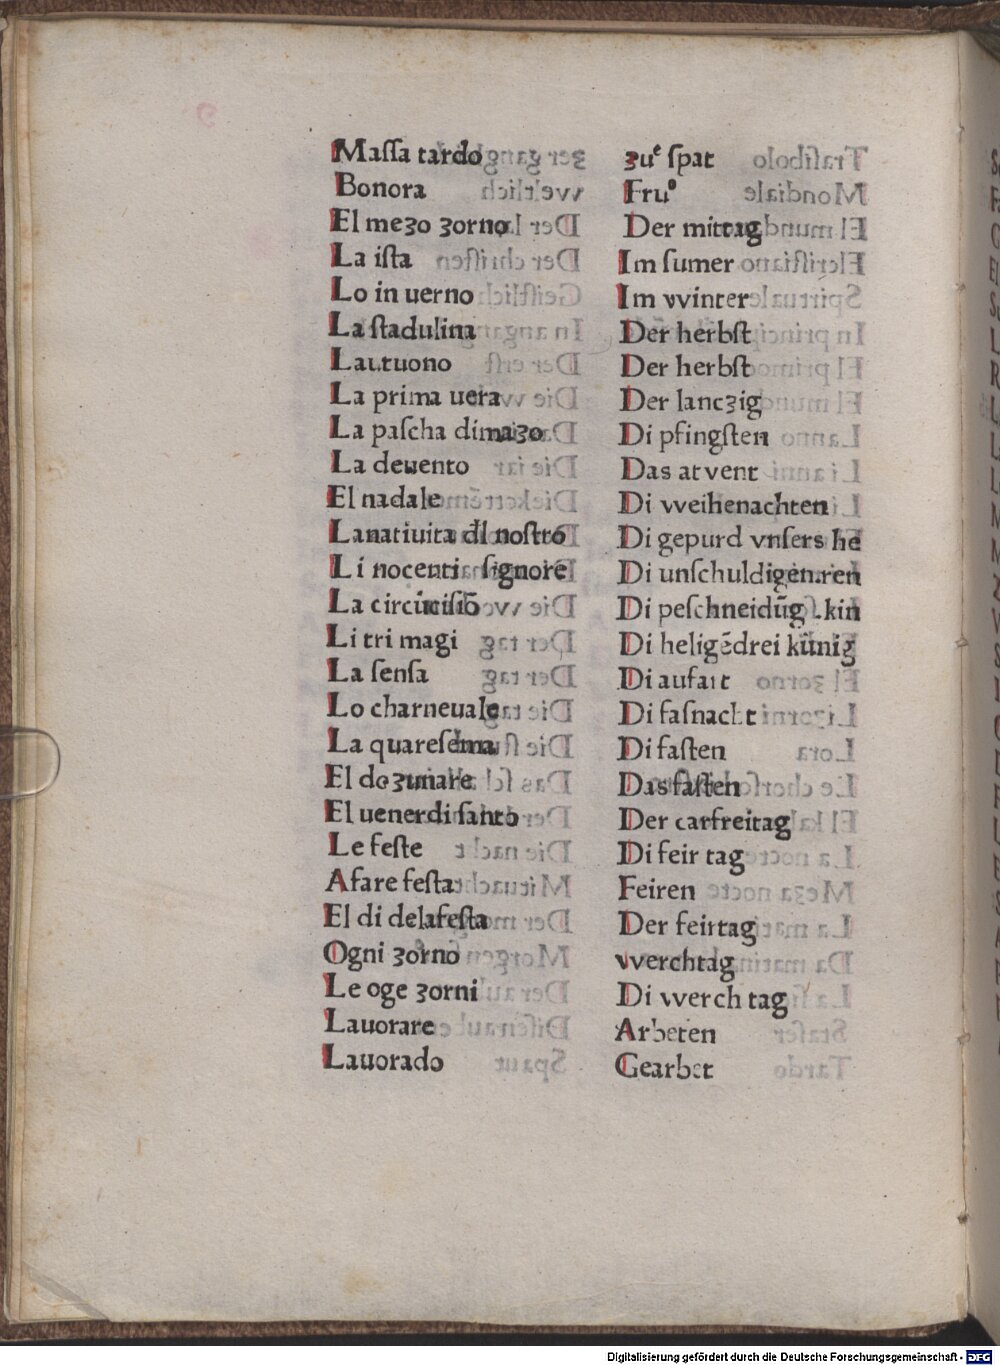 Maſſa tardo zuͤ ſpat
Bonora Fruͦ
El mezo zorno Der mittag
La iſta Im ſumer
Lo in uerno Im vvinter
La ſtadulina Der herbſt
Lautuono Der herbſt
La prima uera Der lanczig
La paſcha dimazo Di pfingſten
La deuento Das atvent
El nadale Di vveihenachten
Lanatiuita đl noſtro Di gepurd vnſers he
Li nocenti ſignore Di unſchuldigen.ren
La circūciſiō Di peſchneidūg .kin
Li tri magi Di heligēdrei künig
La ſenſa Di aufart
Lo charneuale Di faſnacht
La quareſema Di faſten
El dezunare Das faſten
El uenerdi ſanto Der carfreitag
Le feſte Di feir tag
Afare feſta Feiren
El di delafeſta Der feirtag
Ogni zorno vverchtag
Le oge zorni Di vverch tag
Lauorare Arbeten
Lauorado Gearbet
Digitalisierung gefördert durch die Deutsche Forschungsgemeinschaft - DFG